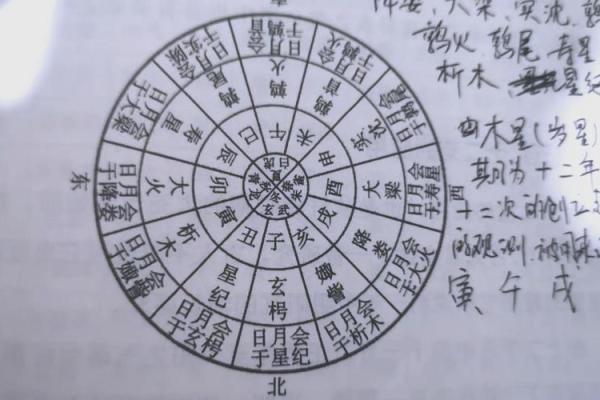 降娄、大梁、实沈、鹑
鹑火、鹑尾、寿星
析木、星纪
由木星(岁星)
其周为十二年
十二次的创立
的观测,被用来
寅 午 戌
东
西
北
日月会于鹑首
日月会于鹑火
日月会于鹑尾
日月会于寿星
日月会于大火
日月会于析木
日月会于星纪
日月会于玄枵
日月会于娵訾
日月会于降娄
日月会于大梁
日月会于实沈
鹑火
鹑首
实沈
大梁
降娄
娵訾
玄枵
星纪
析木
大火
寿星
鹑尾
午
未
申
酉
戌
亥
子
丑
寅
卯
辰
巳
夏
秋
冬
春
玄武